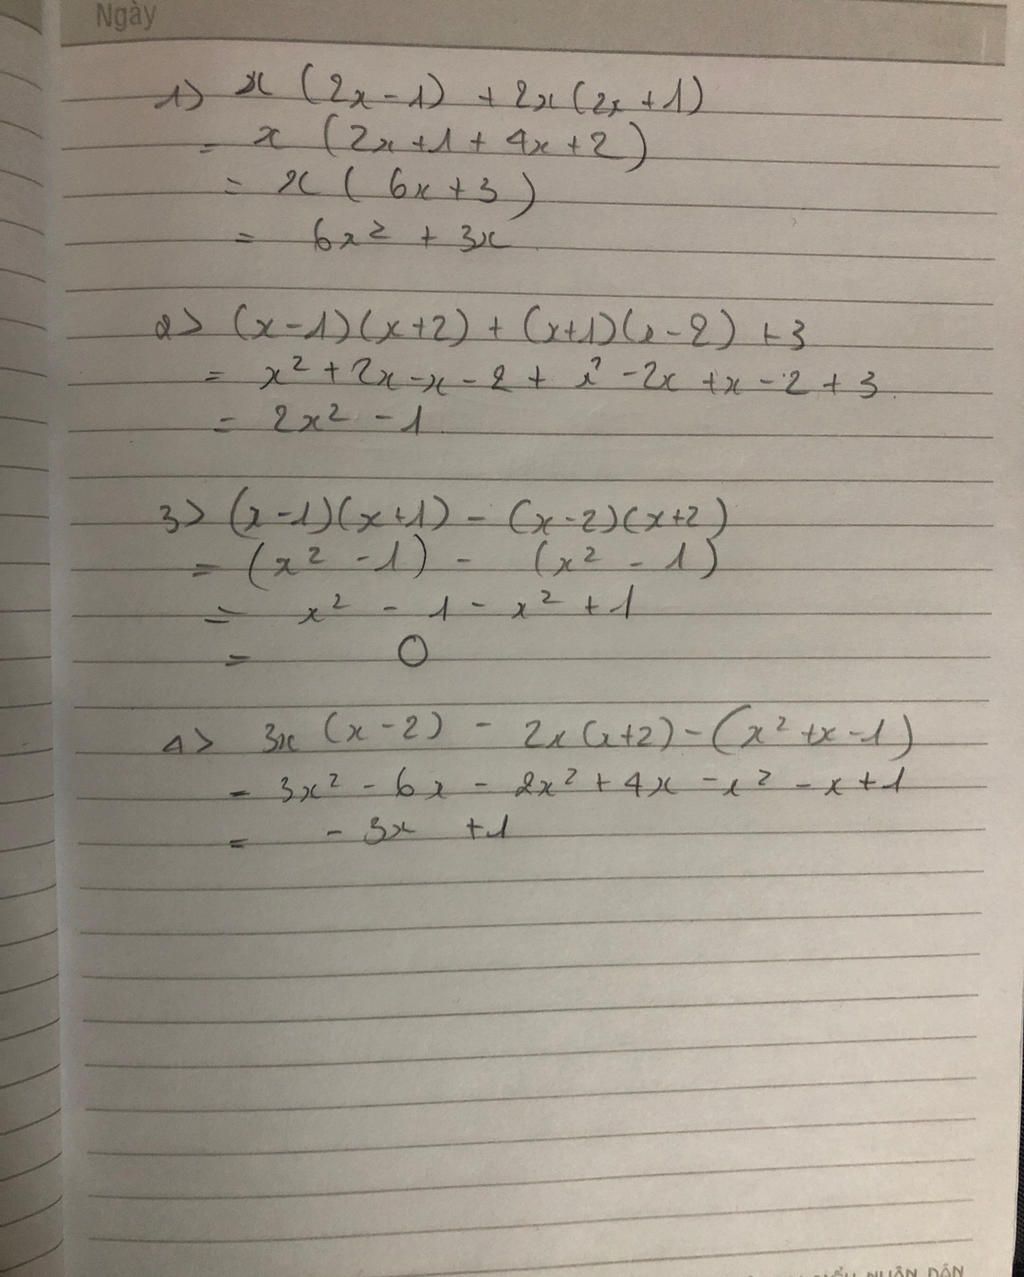 Ngày
1) x (2x - 1) + 2x (2x + 1)
= x (2x + 1 + 4x + 2)
= x ( 6x + 3 )
= 6x² + 3x
2> (x - 1)(x + 2) + (x+1)(x - 2) + 3
= x² + 2x - x - 2 + x² - 2x + x - 2 + 3
= 2x² - 1
3> (x - 1)(x + 1) - (x - 2)(x + 2)
= (x² - 1) - (x² - 1)
= x² - 1 - x² + 1
= 0
4> 3x (x - 2) - 2x (x + 2) - (x² + x - 1)
= 3x² - 6x - 2x² + 4x - x² - x + 1
= - 3x + 1
NHÂN DÂN